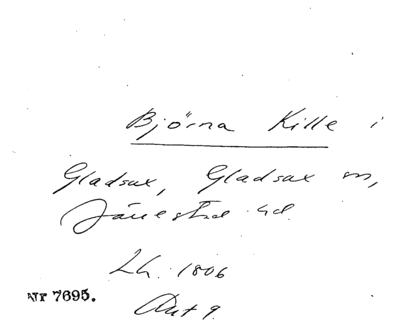 Björna Kille i
Gladsax, Gladsax sn,
Järrestad hd.
Lh. 1806
Akt 9.
Nr 7695.